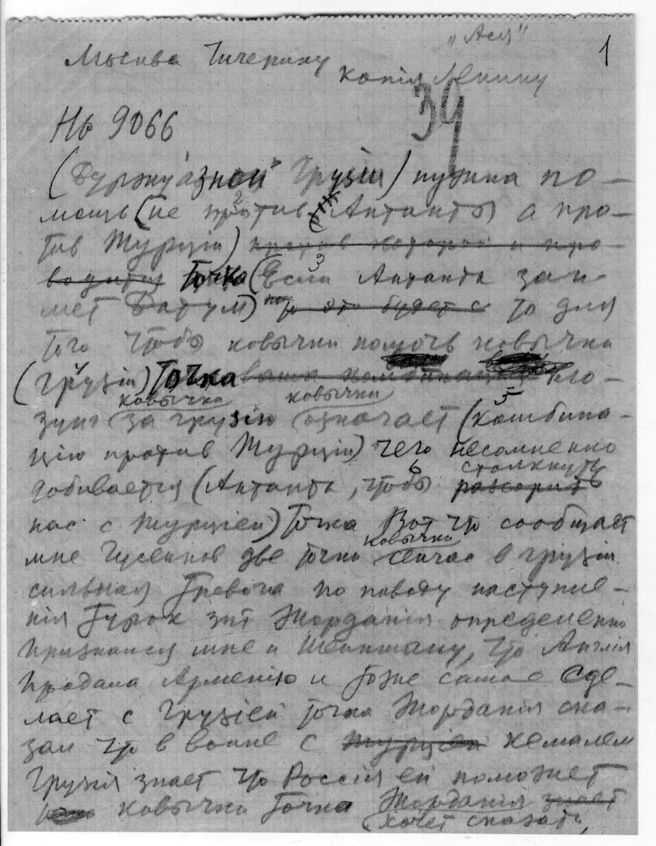 "Ася"
1
Москва Чичерину
копия Ленину
39
Нь 9066
(Буржуазной Грузии) нужна по-
мощь (не против Антанты) а про-
тив Турции) против которой и про-
водится Точка (Если Антанта зай-
мет Батум) то это будет с то для
того чтобы ковычки помочь ковычки
(Грузии) Точка
ковычки ковычки
зунг за грузию означает (комбина-
цию против Турции) чего несомненно
столкнуть
добивается (Антанта, чтобы рассорить
нас с Турцией) Точка Вот что сообщает
ковычки
мне Гусейнов две точки сейчас в грузии
сильная Тревога по поводу наступле-
ния Турок зпт Жордания определенно
признался мне и Шейнману, что Англия
продала Армению и тоже самое сде-
лает с Грузией точка Жордания ска-
зал что в войне с Турцией Кемалем
Грузия знает что Россия ей поможет
ковычки Точка Жордания знает
(хочет сказать,